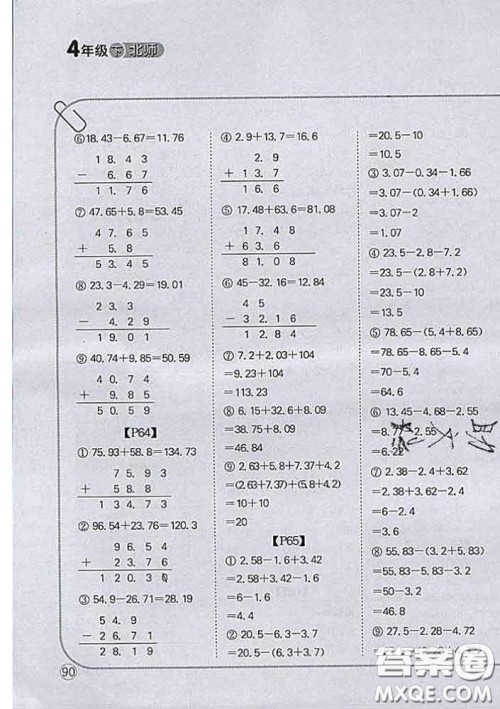 4年级 下 北师
⑥18.43-6.67=11.76
18.43
- 6.67
11.76
⑦ 47.65+5.8=53.45
47.65
+ 5.8
53.45
⑧ 23.3-4.29=19.01
23.3
- 4.29
19.01
⑨ 40.74+9.85=50.59
40.74
+ 9.85
50.59
【P64】
① 75.93+58.8=134.73
75.93
+ 58.8
② 96.54+23.76=120.3
96.54
+ 23.76
120.30
③ 54.9-26.71=28.19
54.9
- 26.71
28.19
90
④ 2.9+13.7=16.6
2.9
+ 13.7
16.6
⑤ 17.48+63.6=81.08
17.48
+ 63.6
81.08
⑥ 45-32.16=12.84
45
- 32.16
12.84
⑦ 7.2+2.03+104
=9.23+104
=113.23
⑧ 6.15+32.6+8.09
=38.75+8.09
=46.84
⑨ 2.63+5.8+7.37+4.2
=(2.63+7.37)+(5.8+4.2)
=10+10
=20
【P65】
① 2.58-1.6+3.42
=2.58+3.42-1.6
=6-1.6
=4.4
② 20.5-6.3-3.7
=20.5-(6.3+3.7)
=20.5-10
=10.5
③ 3.07-0.34-1.66
=3.07-(0.34+1.66)
=3.07-2
=1.07
④ 23.5-2.8-7.2
=23.5-(2.8+7.2)
=23.5-10
=13.5
⑤ 78.65-(5.4+8.65)
=78.65-8.65-5.4
=70-5.4
=64.6
⑥ 13.45-4.68-2.55
=8.77-2.55
=6.22
⑦ 2.38-2.4+3.62
=2.38+3.62-2.4
=6-2.4
=3.6
⑧ 55.83-(3.2+5.83)
=55.83-5.83-3.2
=50-3.2
=46.8
⑨ 27.5-2.28-4.72
答案圈
MXQE.COM